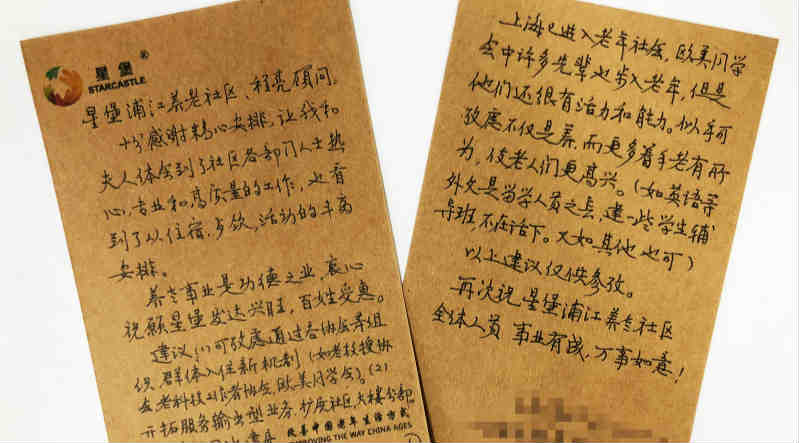 星堡
®
STARCASTLE
星堡浦江养老社区、程亮顾问。
十分感谢精心安排,让我和
夫人体会到了社区各部门人士热
心,专业和高质量的工作,也看
到了从住宿、步饮,活动的丰富
安排。
养老事业是功德之业,衷心
祝愿星堡发达兴旺,百姓受惠。
建议(1)可考虑通过各协会等组
织,群体入住新机制(如老教授协
会,老科技工作者协会,欧美同学会)。(2)
开拓服务输出型业务,扩展社区,大楼分部
改善中国老年生活方式
IMPROVING THE WAY CHINA AGES
上海已进入老年社会,欧美同学
会中许多先辈也步入老年,但是
他们还很有活力和能力。似乎可
考虑不仅是养,而更多着手老有所
为,使老人们更高兴。(如英语等
外文是留学人员之长,建一些学生辅
导班,不在话下。又如其他也可)
以上建议仅供参考。
再次祝星堡浦江养老社区
全体人员 事业有成,万事如意!